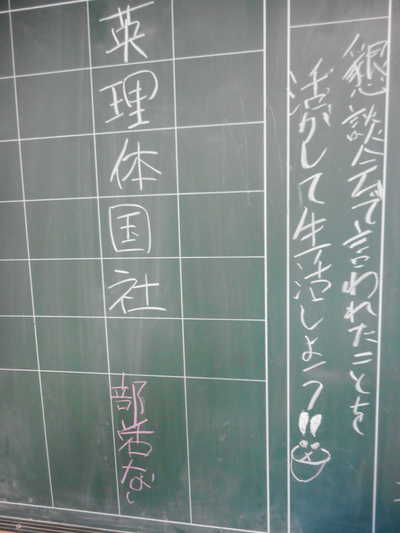 懇談会で言われたことを
活かして生活しよう!!
英
理
体
国
社
部活なし